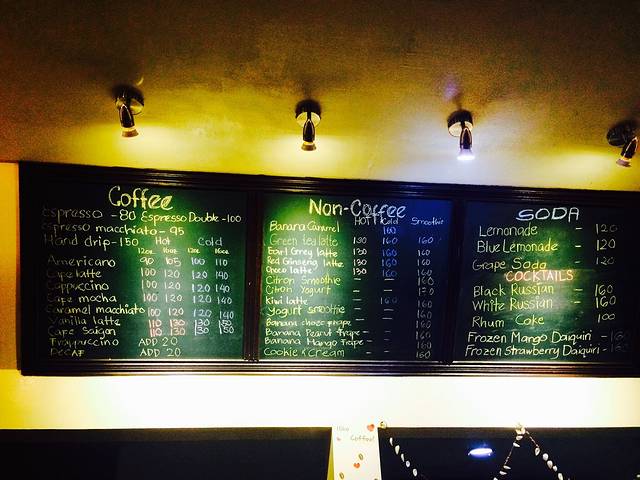 Coffee
Espresso - 80 Espresso Double - 100
Espresso macchiato - 95
Hand drip - 150 Hot Cold
12oz 16oz 12oz 16oz
Americano 90 105 100 110
Cafe latte 100 120 120 140
Cappuccino 100 120 120 140
Cafe mocha 100 120 120 140
Caramel macchiato 100 120 120 140
Vanilla latte 110 130 130 150
Cafe Saigon 110 130 130 150
Frappuccino ADD 20
Decaf ADD 20
Non-Coffee
HOT Cold Smoothie
Banana Caramel 160
Green tea latte 130 160 160
Earl Grey latte 130 160 160
Red Ginseng latte 130 160 160
Choco latte 130 160 160
Citron Smoothie - - 160
Citron Yogurt - - 170
Kiwi latte - 160
Yogurt Smoothie - - 160
Banana choco frape - - 160
Banana Peanut frape - - 160
Banana Mango frape - - 160
Cookie & Cream - - 160
SODA
Lemonade - 120
Blue Lemonade - 120
Grape Soda - 120
COCKTAILS
Black Russian - 160
White Russian - 160
Rhum Coke 100
Frozen Mango Daiquiri -
Frozen Strawberry Daiquiri -
Coffee!